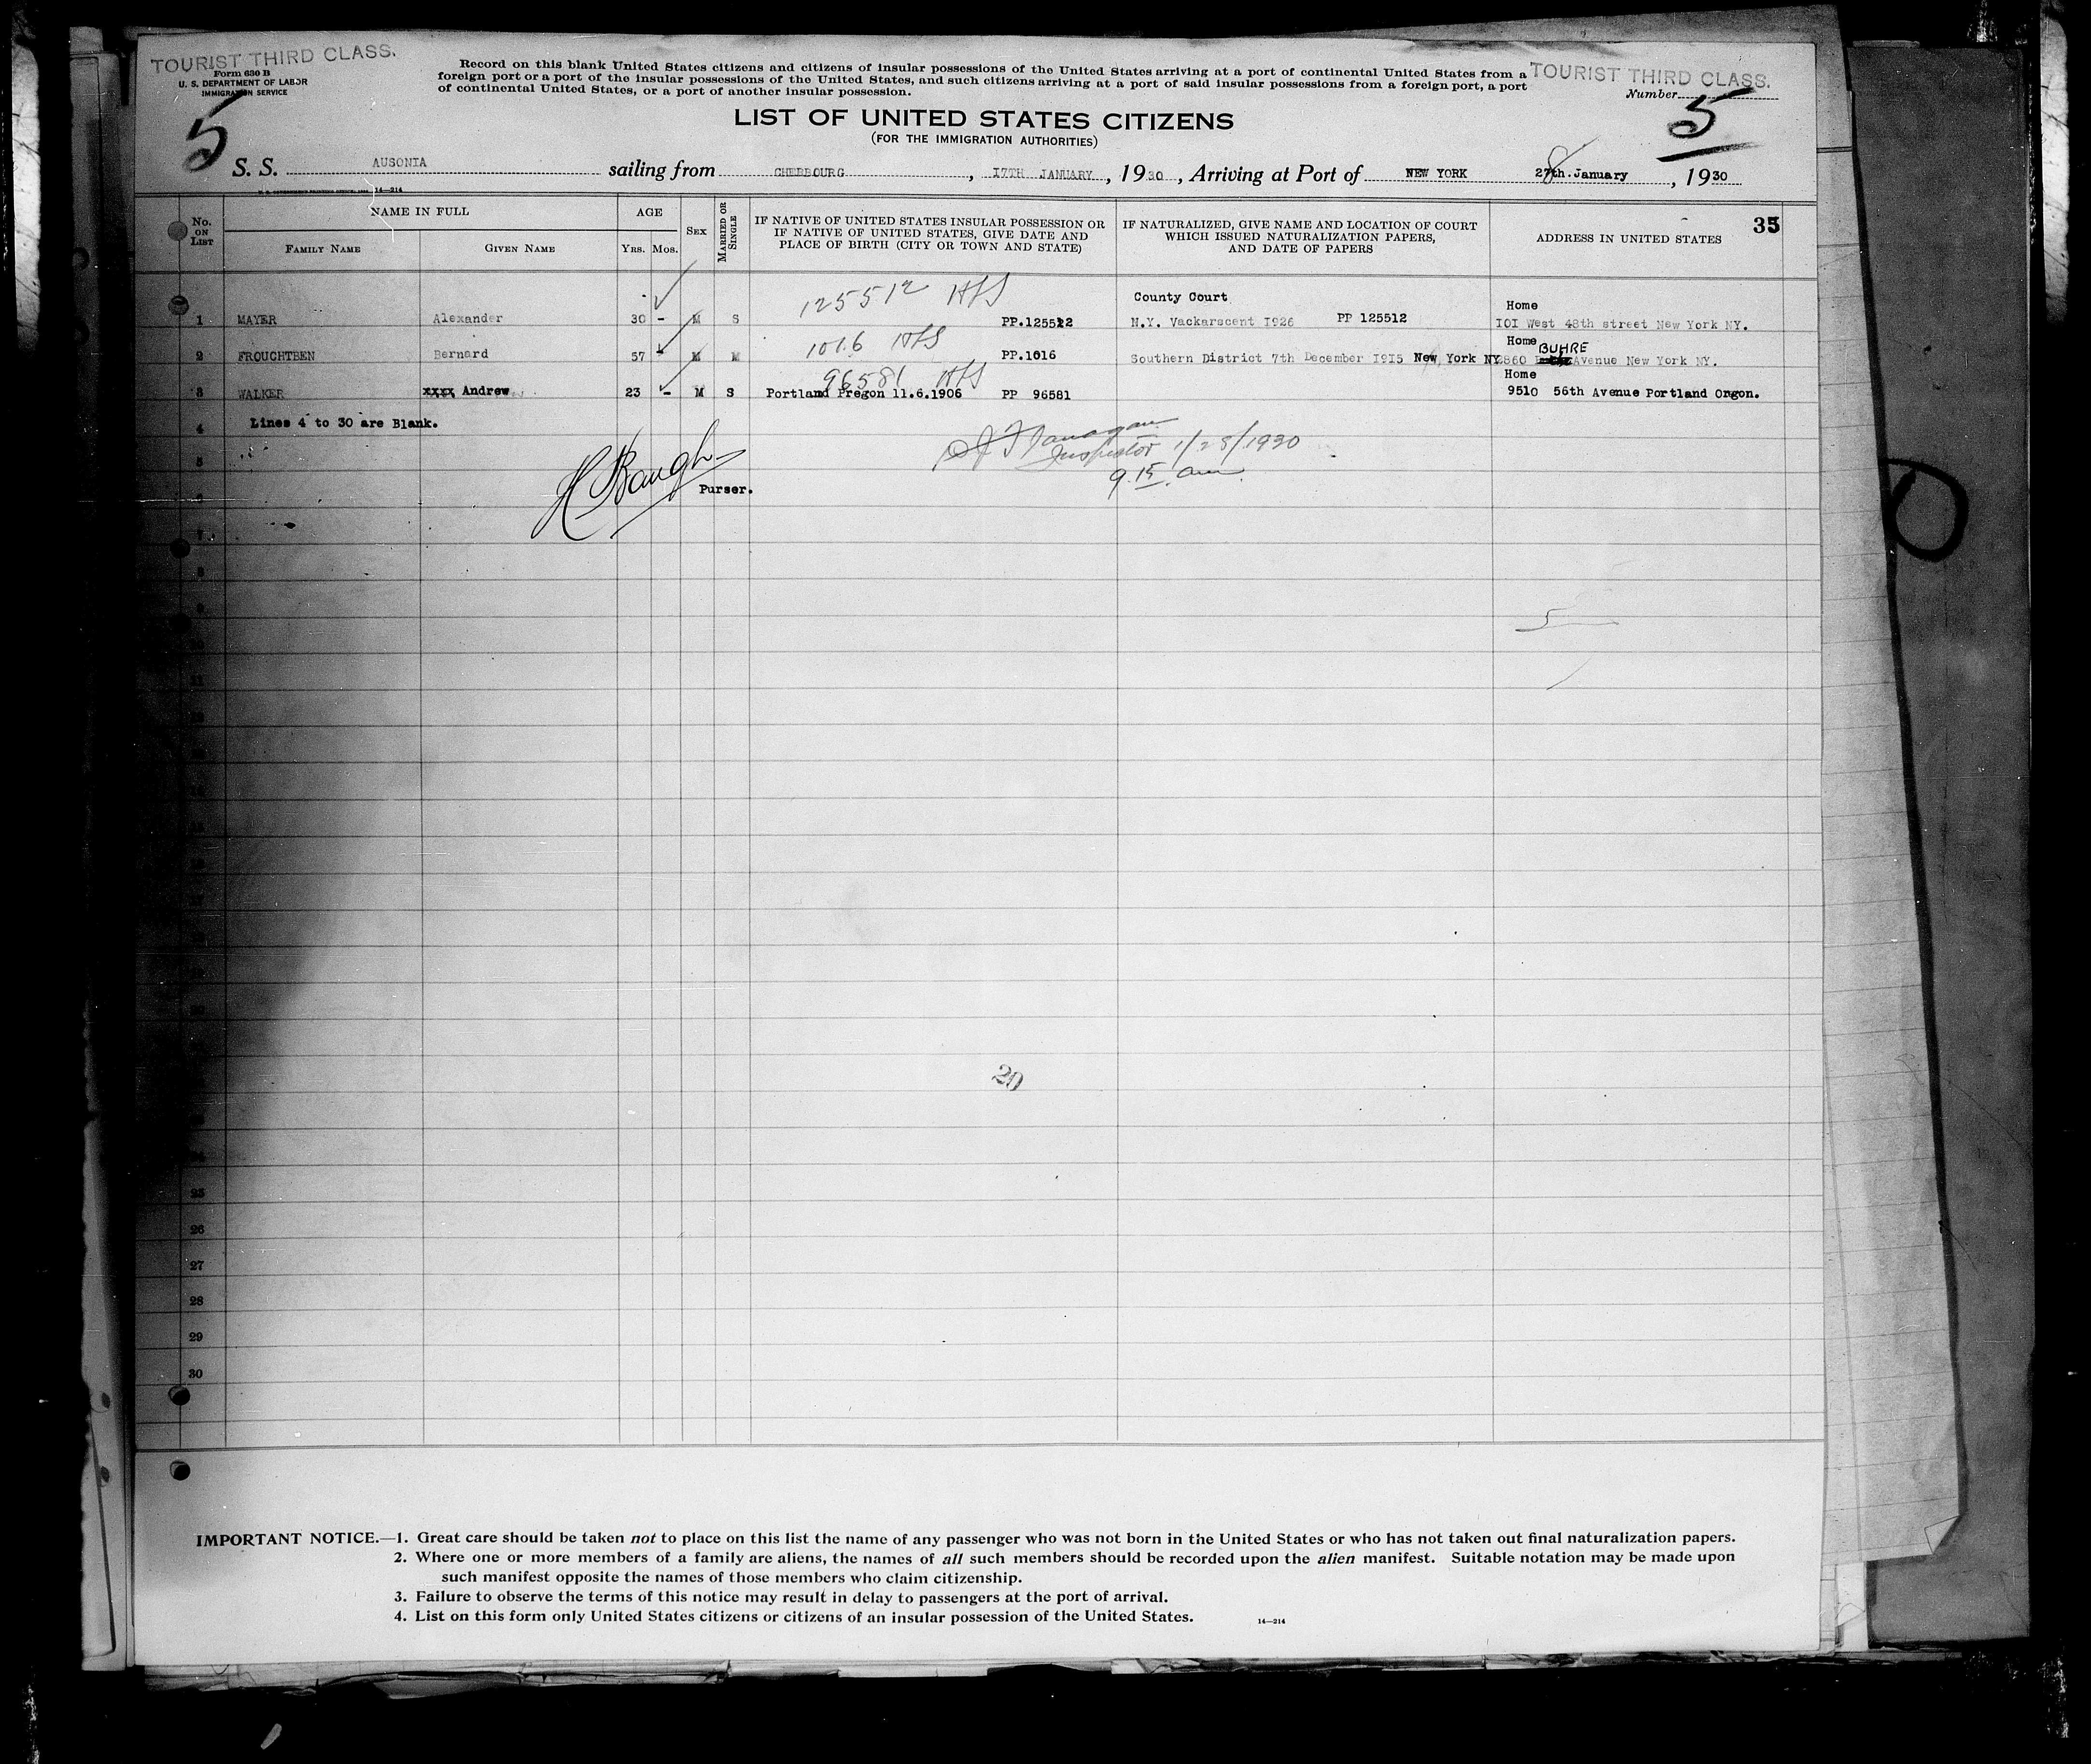 TOURIST THIRD CLASS.
Form 630 B
U. S. DEPARTMENT OF LABOR
IMMIGRATION SERVICE
Record on this blank United States citizens and citizens of insular possessions of the United States arriving at a port of continental United States from a
foreign port or a port of the insular possessions of the United States, and such citizens arriving at a port of said insular possessions from a foreign port, a port
of continental United States, or a port of another insular possession.
TOURIST THIRD CLASS.
Number
5
5
LIST OF UNITED STATES CITIZENS
(FOR THE IMMIGRATION AUTHORITIES)
S. S. AUSONIA sailing from CHERBOURG, I7TH JANUARY, 1930, Arriving at Port of NEW YORK 27th. January, 1930
8
14—214
No. ON LIST
NAME IN FULL
FAMILY NAME
GIVEN NAME
AGE
YRS. MOS.
SEX
MARRIED OR SINGLE
IF NATIVE OF UNITED STATES INSULAR POSSESSION OR
IF NATIVE OF UNITED STATES, GIVE DATE AND
PLACE OF BIRTH (CITY OR TOWN AND STATE)
IF NATURALIZED, GIVE NAME AND LOCATION OF COURT
WHICH ISSUED NATURALIZATION PAPERS,
AND DATE OF PAPERS
ADDRESS IN UNITED STATES
35
125512 HFS
County Court
Home
1 MAYER Alexander 30 - M S PP.125512 N.Y. Vackarscent I926 PP 125512 IOI West 48th street New York NY.
1016 HFS
Home BUHRE
2 FROUCHTBEN Bernard 57 - M M PP.1016 Southern District 7th December I9I5 New York NY 2860 Avenue New York NY.
96581 HFS
Home
3 WALKER xxxx Andrew 23 - M S Portland Pregon 11.6.1906 PP 96581 9510 56th Avenue Portland Orgon.
4 Lines 4 to 30 are Blank.
Inspector 1/28/1930
9.15 am
5
H Baugh
Purser.
6
7
8
9
5
10
11
20
25
26
27
28
29
30
IMPORTANT NOTICE.—1. Great care should be taken not to place on this list the name of any passenger who was not born in the United States or who has not taken out final naturalization papers.
2. Where one or more members of a family are aliens, the names of all such members should be recorded upon the alien manifest. Suitable notation may be made upon
such manifest opposite the names of those members who claim citizenship.
3. Failure to observe the terms of this notice may result in delay to passengers at the port of arrival.
4. List on this form only United States citizens or citizens of an insular possession of the United States.
14—214